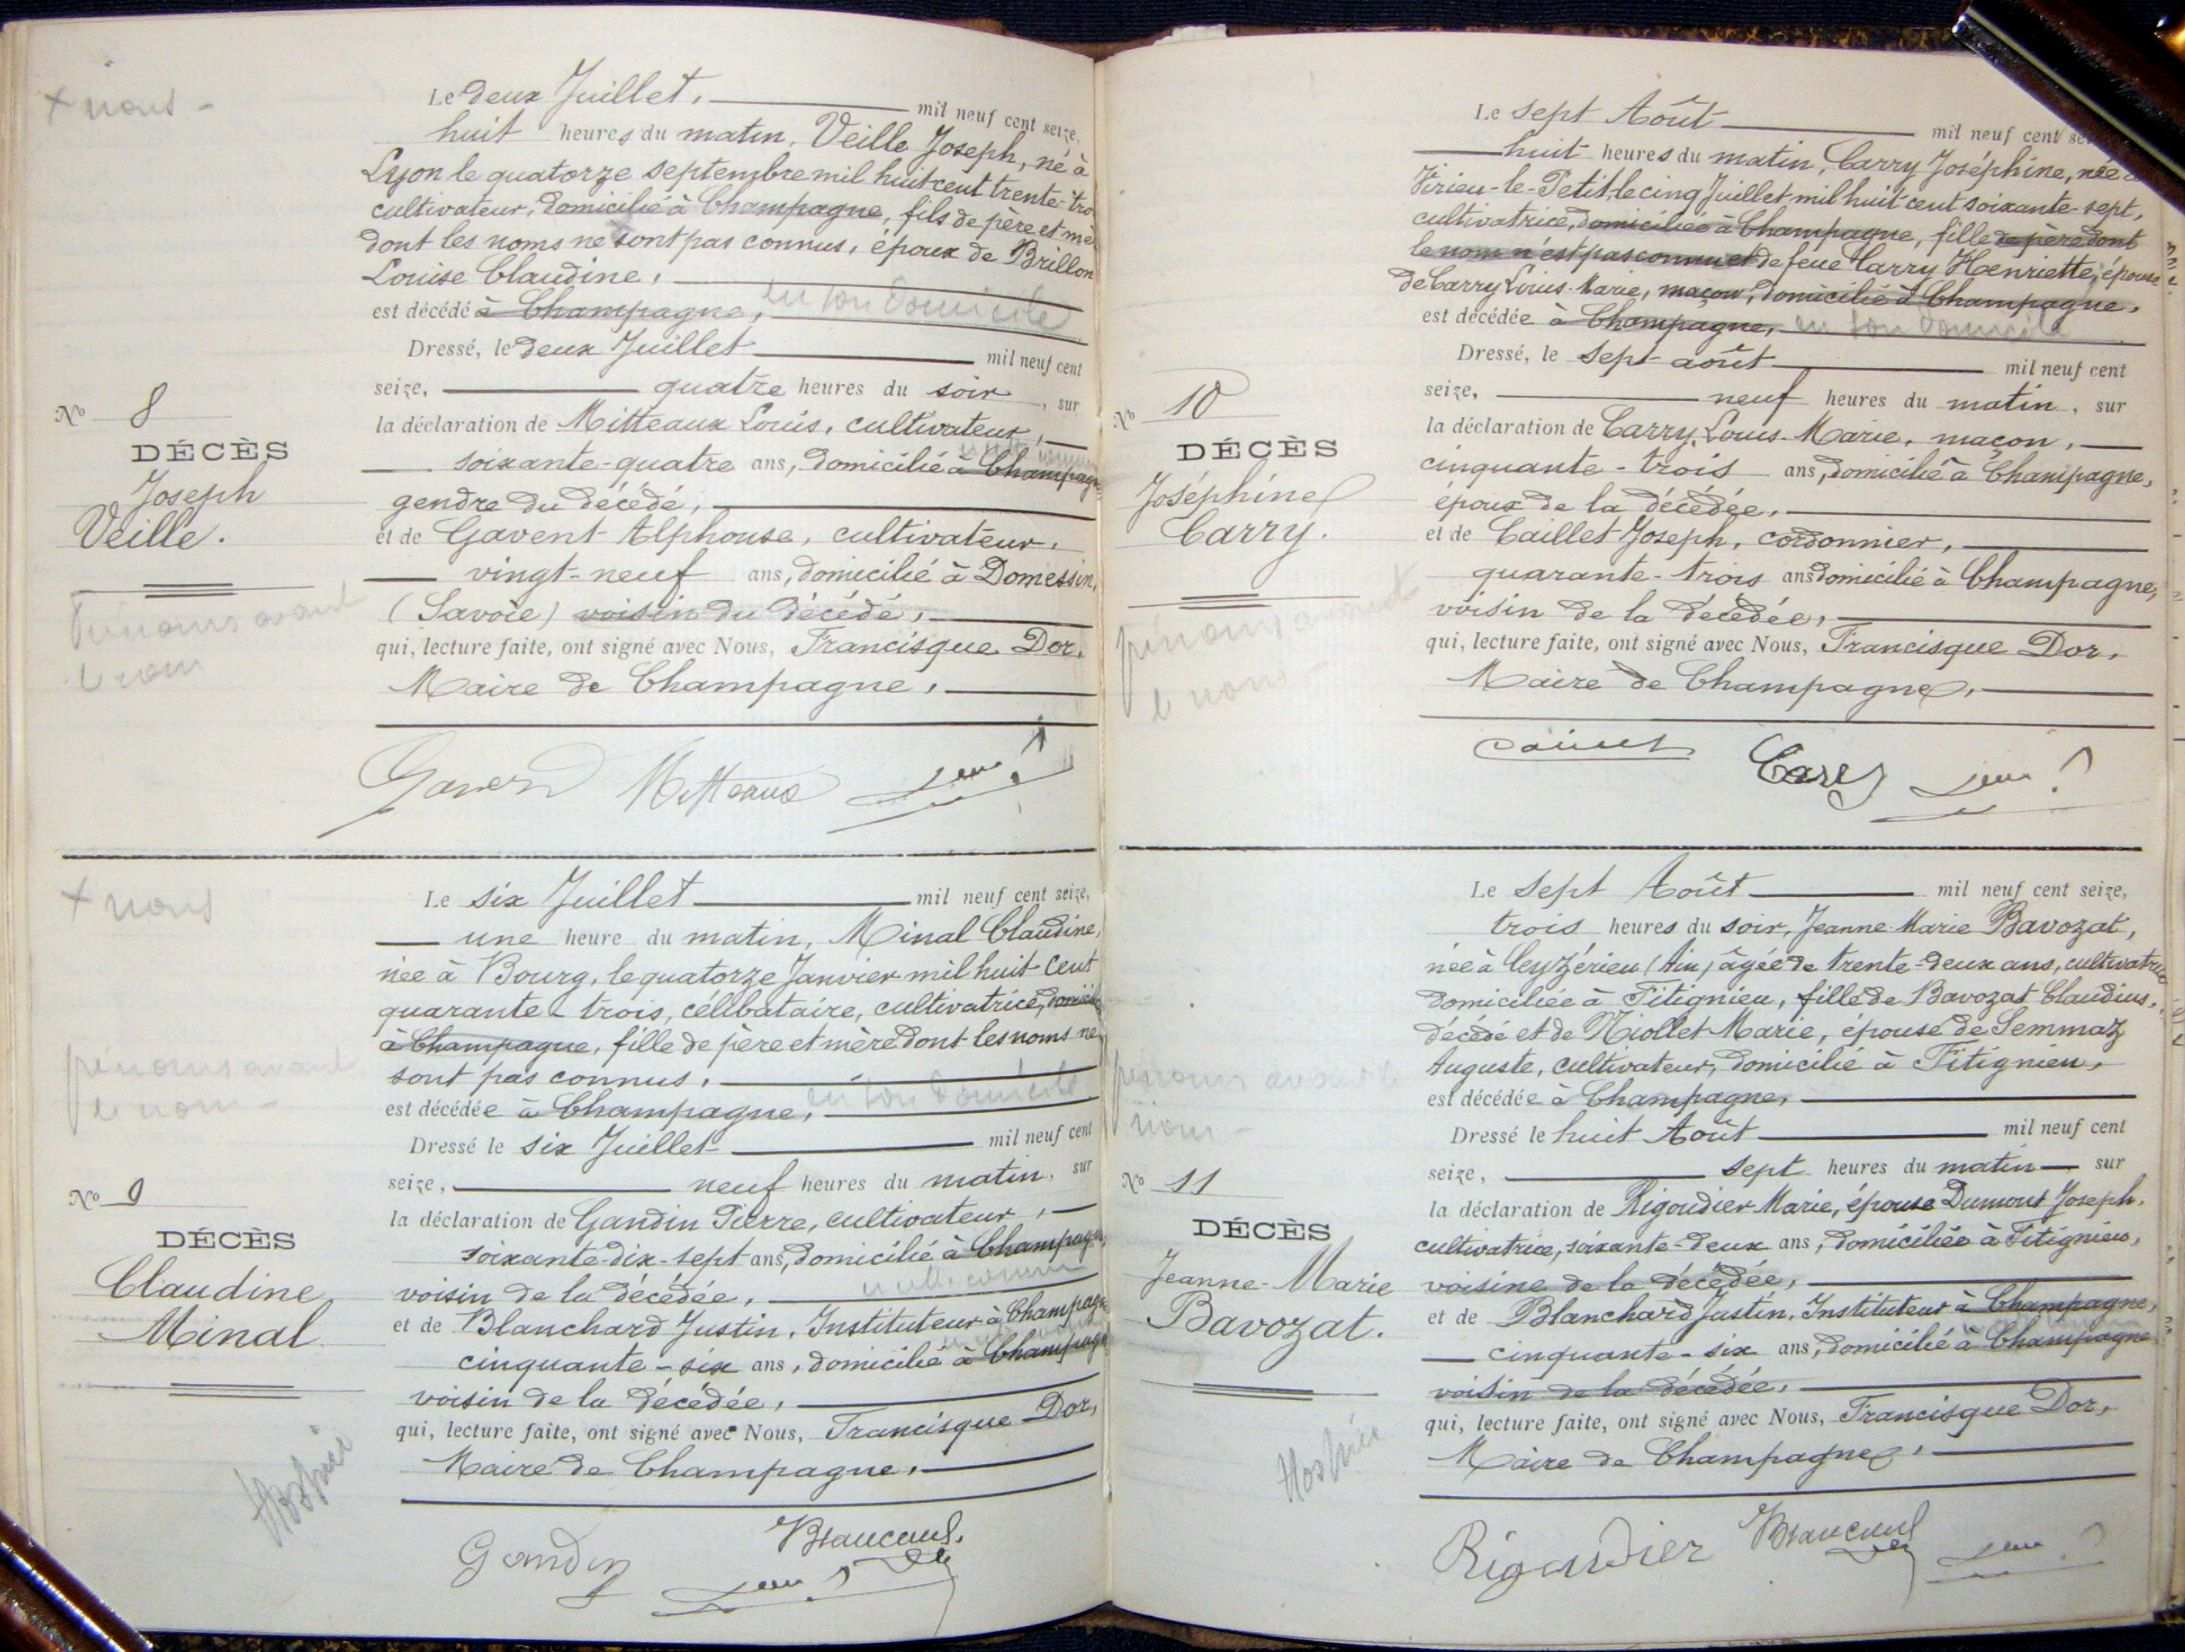 + noms -
Le deux Juillet, mil neuf cent seize,
huit heures du matin, Veille Joseph, né à
Lyon le quatorze septembre mil huit cent trente-tro
cultivateur, domicilié à Champagne, fils de père et mè
dont les noms ne sont pas connus, époux de Brillon
Louise Claudine,
est décédé à Champagne, en son domicile
Dressé, le deux Juillet mil neuf cent
seize, quatre heures du soir, sur
la déclaration de Mitteaux Louis, cultivateur,
soixante-quatre ans, domicilié à Champagne
gendre du décédé,
et de Gavent Alphonse, cultivateur,
vingt-neuf ans, domicilié à Domessin,
(Savoie) voisin du décédé,
qui, lecture faite, ont signé avec Nous, Francisque Dor,
Maire de Champagne,
No 8
DÉCÈS
Joseph
Veille.
Prénoms avant
le nom
Gavend Mitteaux
+ noms
Le six Juillet mil neuf cent seize,
une heure du matin, Minal Claudine,
née à Bourg, le quatorze Janvier mil huit cent
quarante-trois, célibataire, cultivatrice, domiciliée
à Champagne, fille de père et mère dont les noms ne
sont pas connus,
est décédée à Champagne, en son domicile
Dressé le six Juillet mil neuf cent
seize, neuf heures du matin, sur
la déclaration de Gandin Pierre, cultivateur,
soixante-dix-sept ans, domicilié à Champagne,
voisin de la décédée,
et de Blanchard Justin, Instituteur à Champagne
cinquante-six ans, domicilié à Champagne
voisin de la décédée,
qui, lecture faite, ont signé avec Nous, Francisque Dor,
Maire de Champagne,
prénoms avant
le nom -
No 9
DÉCÈS
Claudine
Minal
Hospice
Gandin Blanchard
Le sept Août mil neuf cent se
huit heures du matin, Carry Joséphine, née à
Virieu-le-Petit, le cinq Juillet mil huit cent soixante-sept,
cultivatrice, domiciliée à Champagne, fille de père dont
le nom n'est pas connu et de feue Carry Henriette, épouse
de Carry Louis-Marie, maçon, domicilié à Champagne,
est décédée à Champagne, en son domicile
Dressé, le sept août mil neuf cent
seize, neuf heures du matin, sur
la déclaration de Carry, Louis-Marie, maçon,
cinquante-trois ans, domicilié à Champagne,
époux de la décédée,
et de Caillet Joseph, cordonnier,
quarante-trois ans domicilié à Champagne,
voisin de la décédée,
qui, lecture faite, ont signé avec Nous, Francisque Dor,
Maire de Champagne,
No 10
DÉCÈS
Joséphine
Carry.
prénoms avant
le nom
Caillet Carry
Le Sept Août mil neuf cent seize,
trois heures du soir, Jeanne-Marie Bavozat,
née à Ceyzérieu (Ain) âgée de trente-deux ans, cultivatrice
domiciliée à Fitignieu, fille de Bavozat Claudius,
décédé et de Niollet Marie, épouse de Semmaz
Auguste, cultivateur, domicilié à Fitignieu,
est décédée à Champagne,
Dressé le huit Août mil neuf cent
seize, sept heures du matin sur
la déclaration de Rigoudier Marie, épouse Dumont Joseph,
cultivatrice, soixante-deux ans, domiciliée à Fitignieu,
voisine de la décédée,
et de Blanchard Justin, Instituteur à Champagne,
cinquante-six ans, domicilié à Champagne
voisin de la décédée,
qui, lecture faite, ont signé avec Nous, Francisque Dor,
Maire de Champagne,
prénoms avant le
nom -
No 11
DÉCÈS
Jeanne-Marie
Bavozat.
Hospice
Rigaudier Blanchard